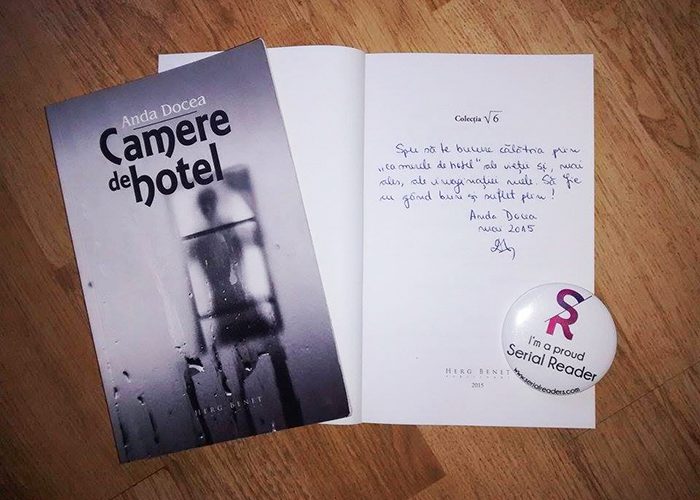 Anda Docea
Camere
de hotel
HERG BENET
Colecția √6
Sper să te bucure călătoria prin
„camerele de hotel" ale vieții și, mai
ales, ale imaginației mele. Să fie
cu gând bun și suflet plin!
Anda Docea
mai 2015
HERG BENET
2015
SR
I'm a proud
Serial Reader
www.serialreaders.com